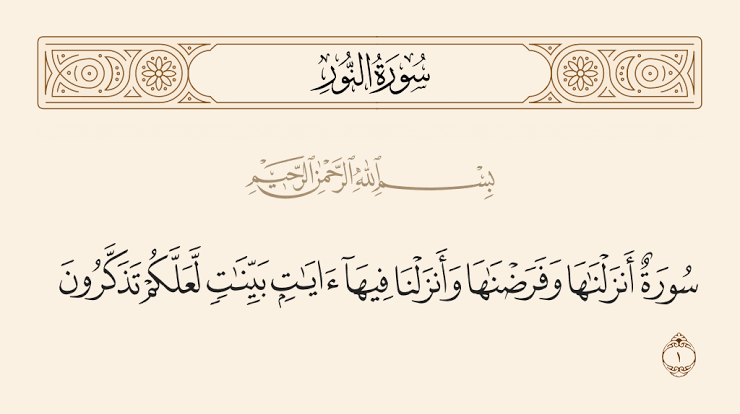 سُورَةُ النُّورِ
بِسْمِ ٱللَّهِ ٱلرَّحْمَٰنِ ٱلرَّحِيمِ
سُورَةٌ أَنزَلْنَٰهَا وَفَرَضْنَٰهَا وَأَنزَلْنَا فِيهَآ ءَايَٰتٍۭ بَيِّنَٰتٍ لَّعَلَّكُمْ تَذَكَّرُونَ
١